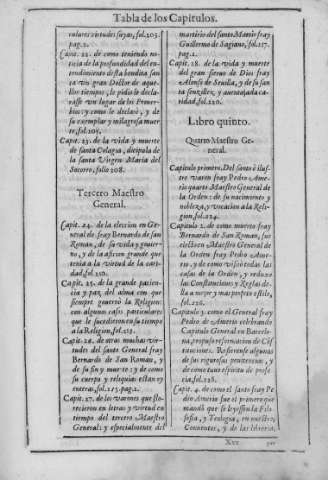 Tabla de los Capitulos.
culares virtudes suyas, fol. 203.
pag. 2.
Capit. 22. de como teniendo no-
ticia de la profundidad del en-
tendimiento desta bendita san
ta vn gran Doctor de aque-
llos tiempos, le pidio le decla-
rasse vn lugar de los Prouer-
bios: y como le declarò, y de
su exemplar y milagrosa muer
te, fol. 205.
Capit. 23. de la vida y muerte
de santa Colagia, dicipula de
la santa Virgen Maria del
Socorro, folio 208.
Tercero Maestro
General.
Capit. 24. de la eleccion en Ge-
neral de fray Bernardo de san
Roman, de su vida y gouier-
no, y de la aficion grande que
tenia a la virtud de la cari-
dad, fol. 210.
Capit. 25. de la grande pacien-
cia y paz del alma con que
siempre gouernò la Religion:
con algunos casos particulares
que le sucedieron en su tiempo
a la Religion, fol.
Capit. 26. de otras muchas vir-
tudes del santo General fray
Bernardo de San Roman, y
de su fin y muerte: y de como
su cuerpo y reliquias estan en
fol. 215. pag. 2.
Capit. 27. de los varones que flo-
recieron en letras y virtud en
tiempo del tercero Maestro
General: y especialmente del
martirio del santo Martir fray
Guillermo de Sagiano, fol. 217.
pag. 2.
Capit. 28. de la vida y muerte
del gran sieruo de Dios fray
Alonso de Seuilla, y de su san
ta senzillez, y auentajada ca-
ridad, fol. 220.
Libro quinto.
Quarto Maestro Ge-
neral.
Capitulo primero. Del santo è ilus-
tre varon fray Pedro, Ame-
rio quarto Maestro General de
la Orden: de su nacimiento y
nobleza, y vocacion a la Reli-
gion, fol. 224.
Capitulo 2. de como muerto fray
Bernardo de San Roman, fue
electo en Maestro General de
la Orden fray Pedro Ame-
rio, y de como visitò todas las
casas de la Orden, y reduxo
las Constituciones y Reglas de-
lla a mejor y mas propio estilo,
fol. 226.
Capitulo 3. como el General fray
Pedro de Amerio celebrando
Capitulo General en Barcelo-
na, propuso reformacion de Cõs
tituciones. Refierense algunas
de las rigurosas penitencias, y
de como tuuo espiritu de profe-
cia, fol. 228.
Capit. 4. de como el santo fray Pe
dro Amerio fue el primero que
mandò que se leyesse la Filo-
sofia, y Teologia, en nuestros
Conuentos, y de las libreras